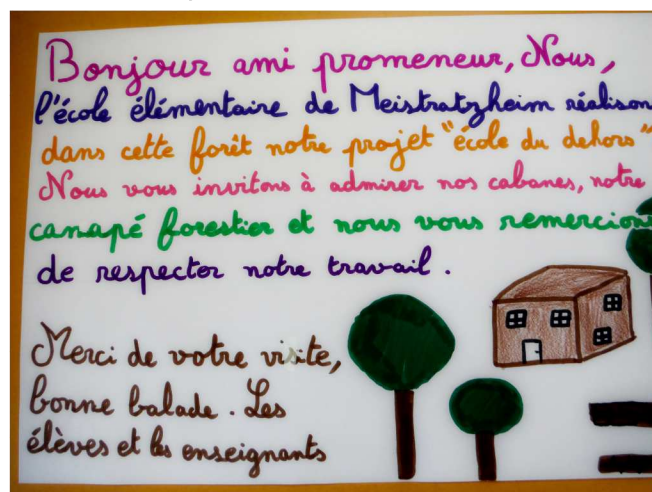 Bonjour ami promeneur, Nous,
l'école élémentaire de Meistratzheim réalison
dans cette forêt notre projet "école du dehors"
Nous vous invitons à admirer nos cabanes, notre
canapé forestier et nous vous remercions
de respecter notre travail.
Merci de votre visite,
bonne balade. Les
élèves et les enseignants